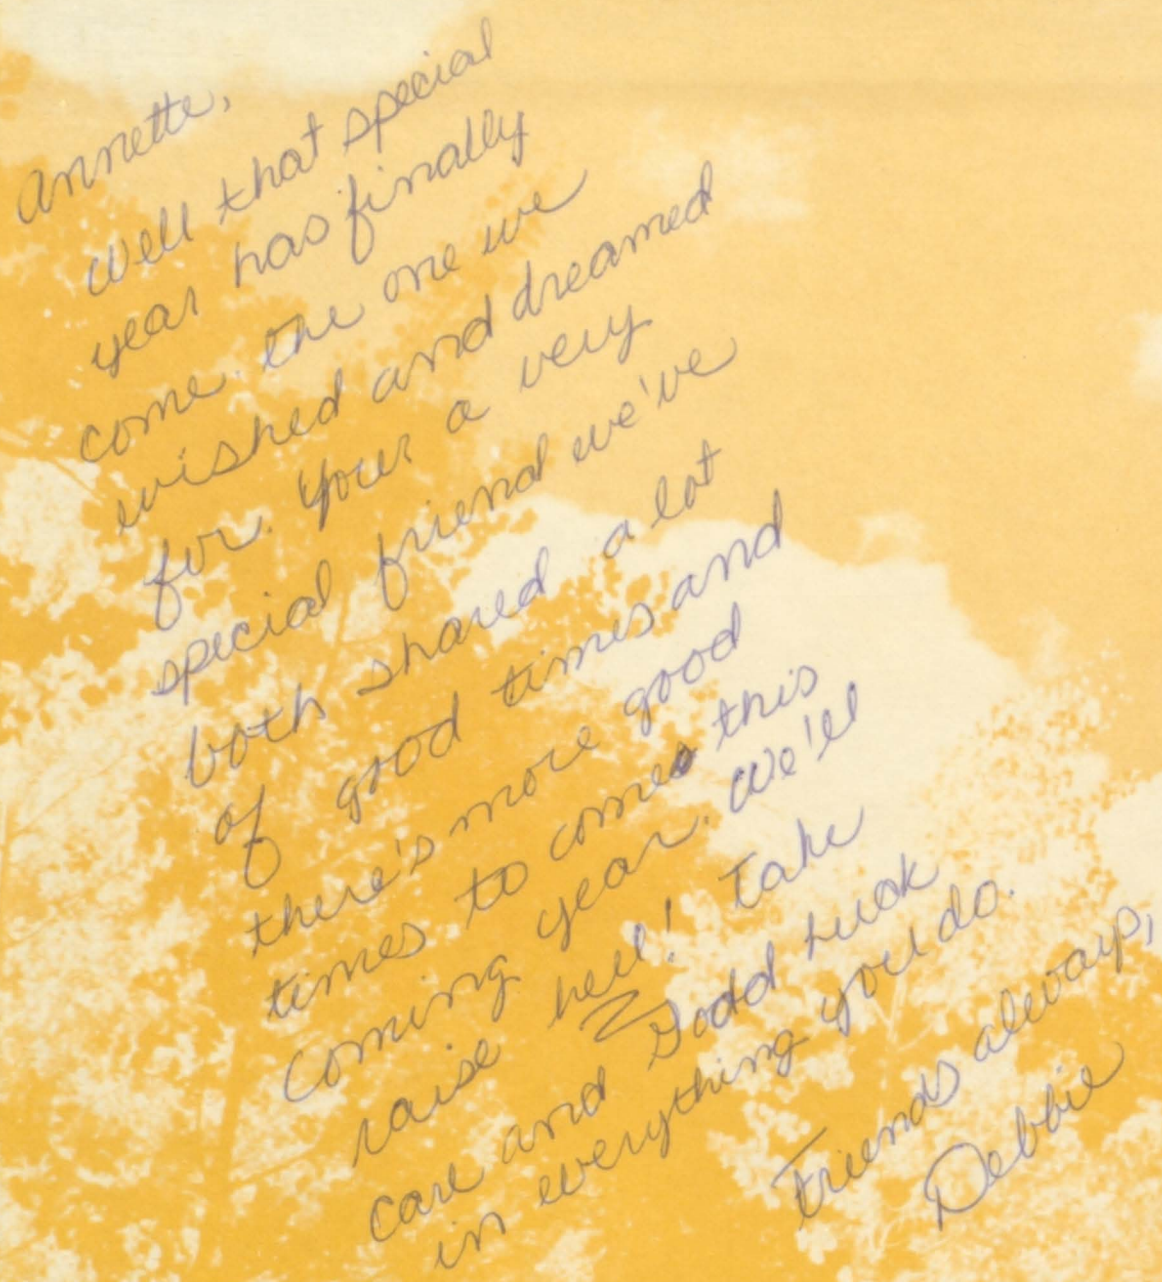 Annette,
Well that special
year has finally
come. the one we
wished and dreamed
for. Your a very
special friend we've
both shared a lot
of good times and
there's more good
times to come this
coming year. We'll
raise hell! Take
care and Good Luck
in everything you do.
Friends always,
Debbie